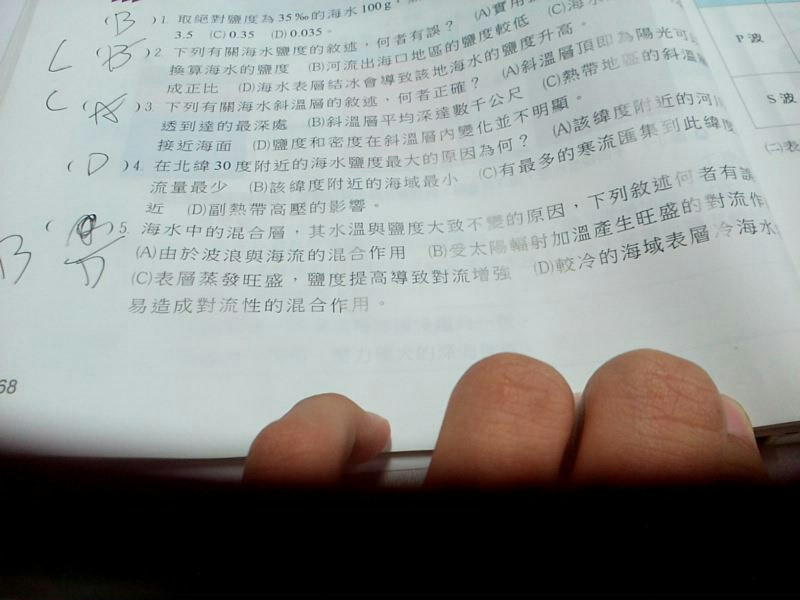 ( B ) 1. 取絕對鹽度為 35‰ 的海水 100 g，
3.5 (C) 0.35 (D) 0.035。
C ( B ) 2. 下列有關海水鹽度的敘述，何者有誤？ (A)實用
換算海水的鹽度 (B)河流出海口地區的鹽度較低 (C)海水
成正比 (D)海水表層結冰會導致該地海水的鹽度升高。
C ( A ) 3. 下列有關海水斜溫層的敘述，何者正確？ (A)斜溫層頂即為陽光可
透到達的最深處 (B)斜溫層平均深達數千公尺 (C)熱帶地區的斜溫
接近海面 (D)鹽度和密度在斜溫層內變化並不明顯。
( D ) 4. 在北緯 30 度附近的海水鹽度最大的原因為何？ (A)該緯度附近的河川
流量最少 (B)該緯度附近的海域最小 (C)有最多的寒流匯集到此緯度
近 (D)副熱帶高壓的影響。
B ( ) 5. 海水中的混合層，其水溫與鹽度大致不變的原因，下列敘述何者有誤
D (A)由於波浪與海流的混合作用 (B)受太陽輻射加溫產生旺盛的對流作
(C)表層蒸發旺盛，鹽度提高導致對流增強 (D)較冷的海域表層冷海水
易造成對流性的混合作用。
68
P 波
S 波
(二)表